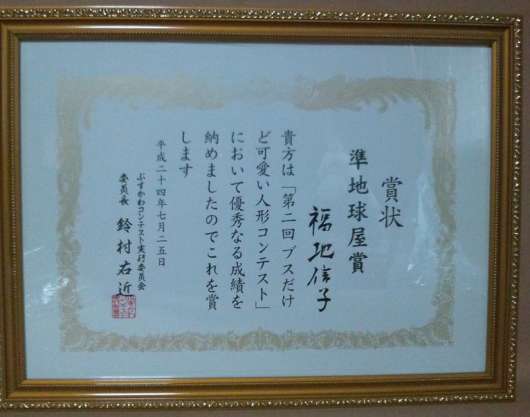 賞状
準地球屋賞
福地信子
貴方は「第二回 ブスだけ
ど可愛い人形コンテスト」
において優秀なる成績を
納めましたのでこれを賞
します
平成二十四年七月二五日
ぶすかわコンテスト実行委員会
委員長 鈴村右近